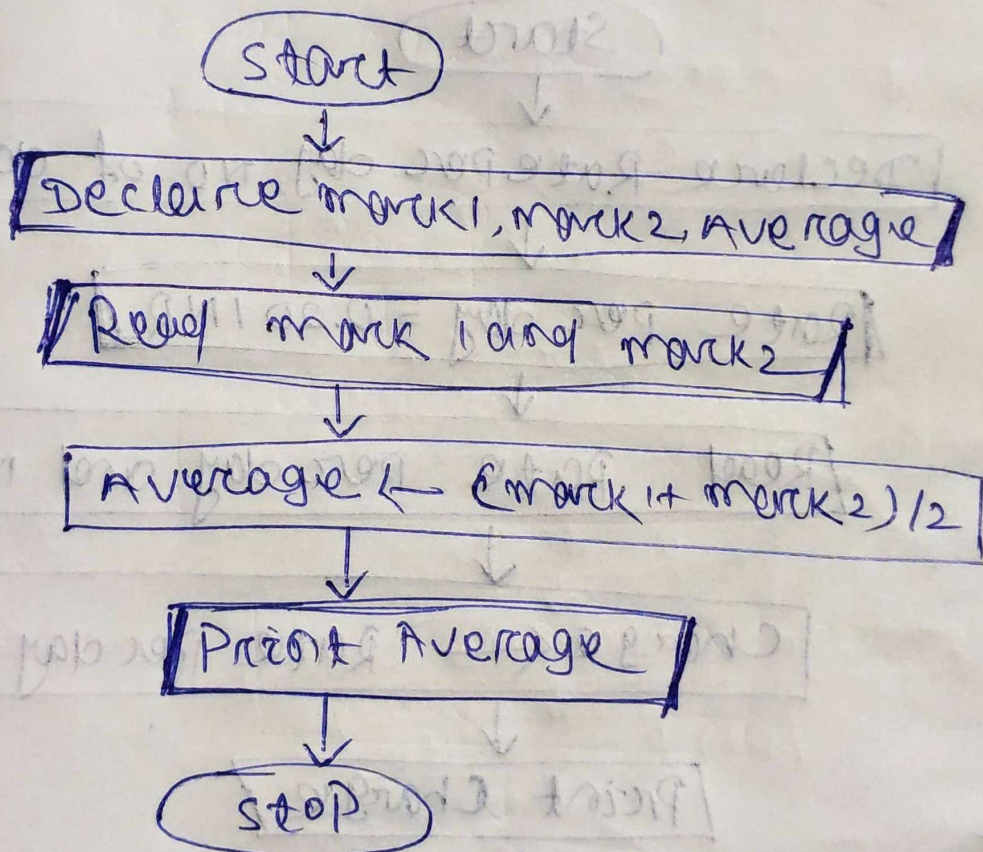 Start
Declare mark1, mark2, Average
Read mark 1 and mark2
Average ← (mark 1+ mark 2)/2
Print Average
Stop